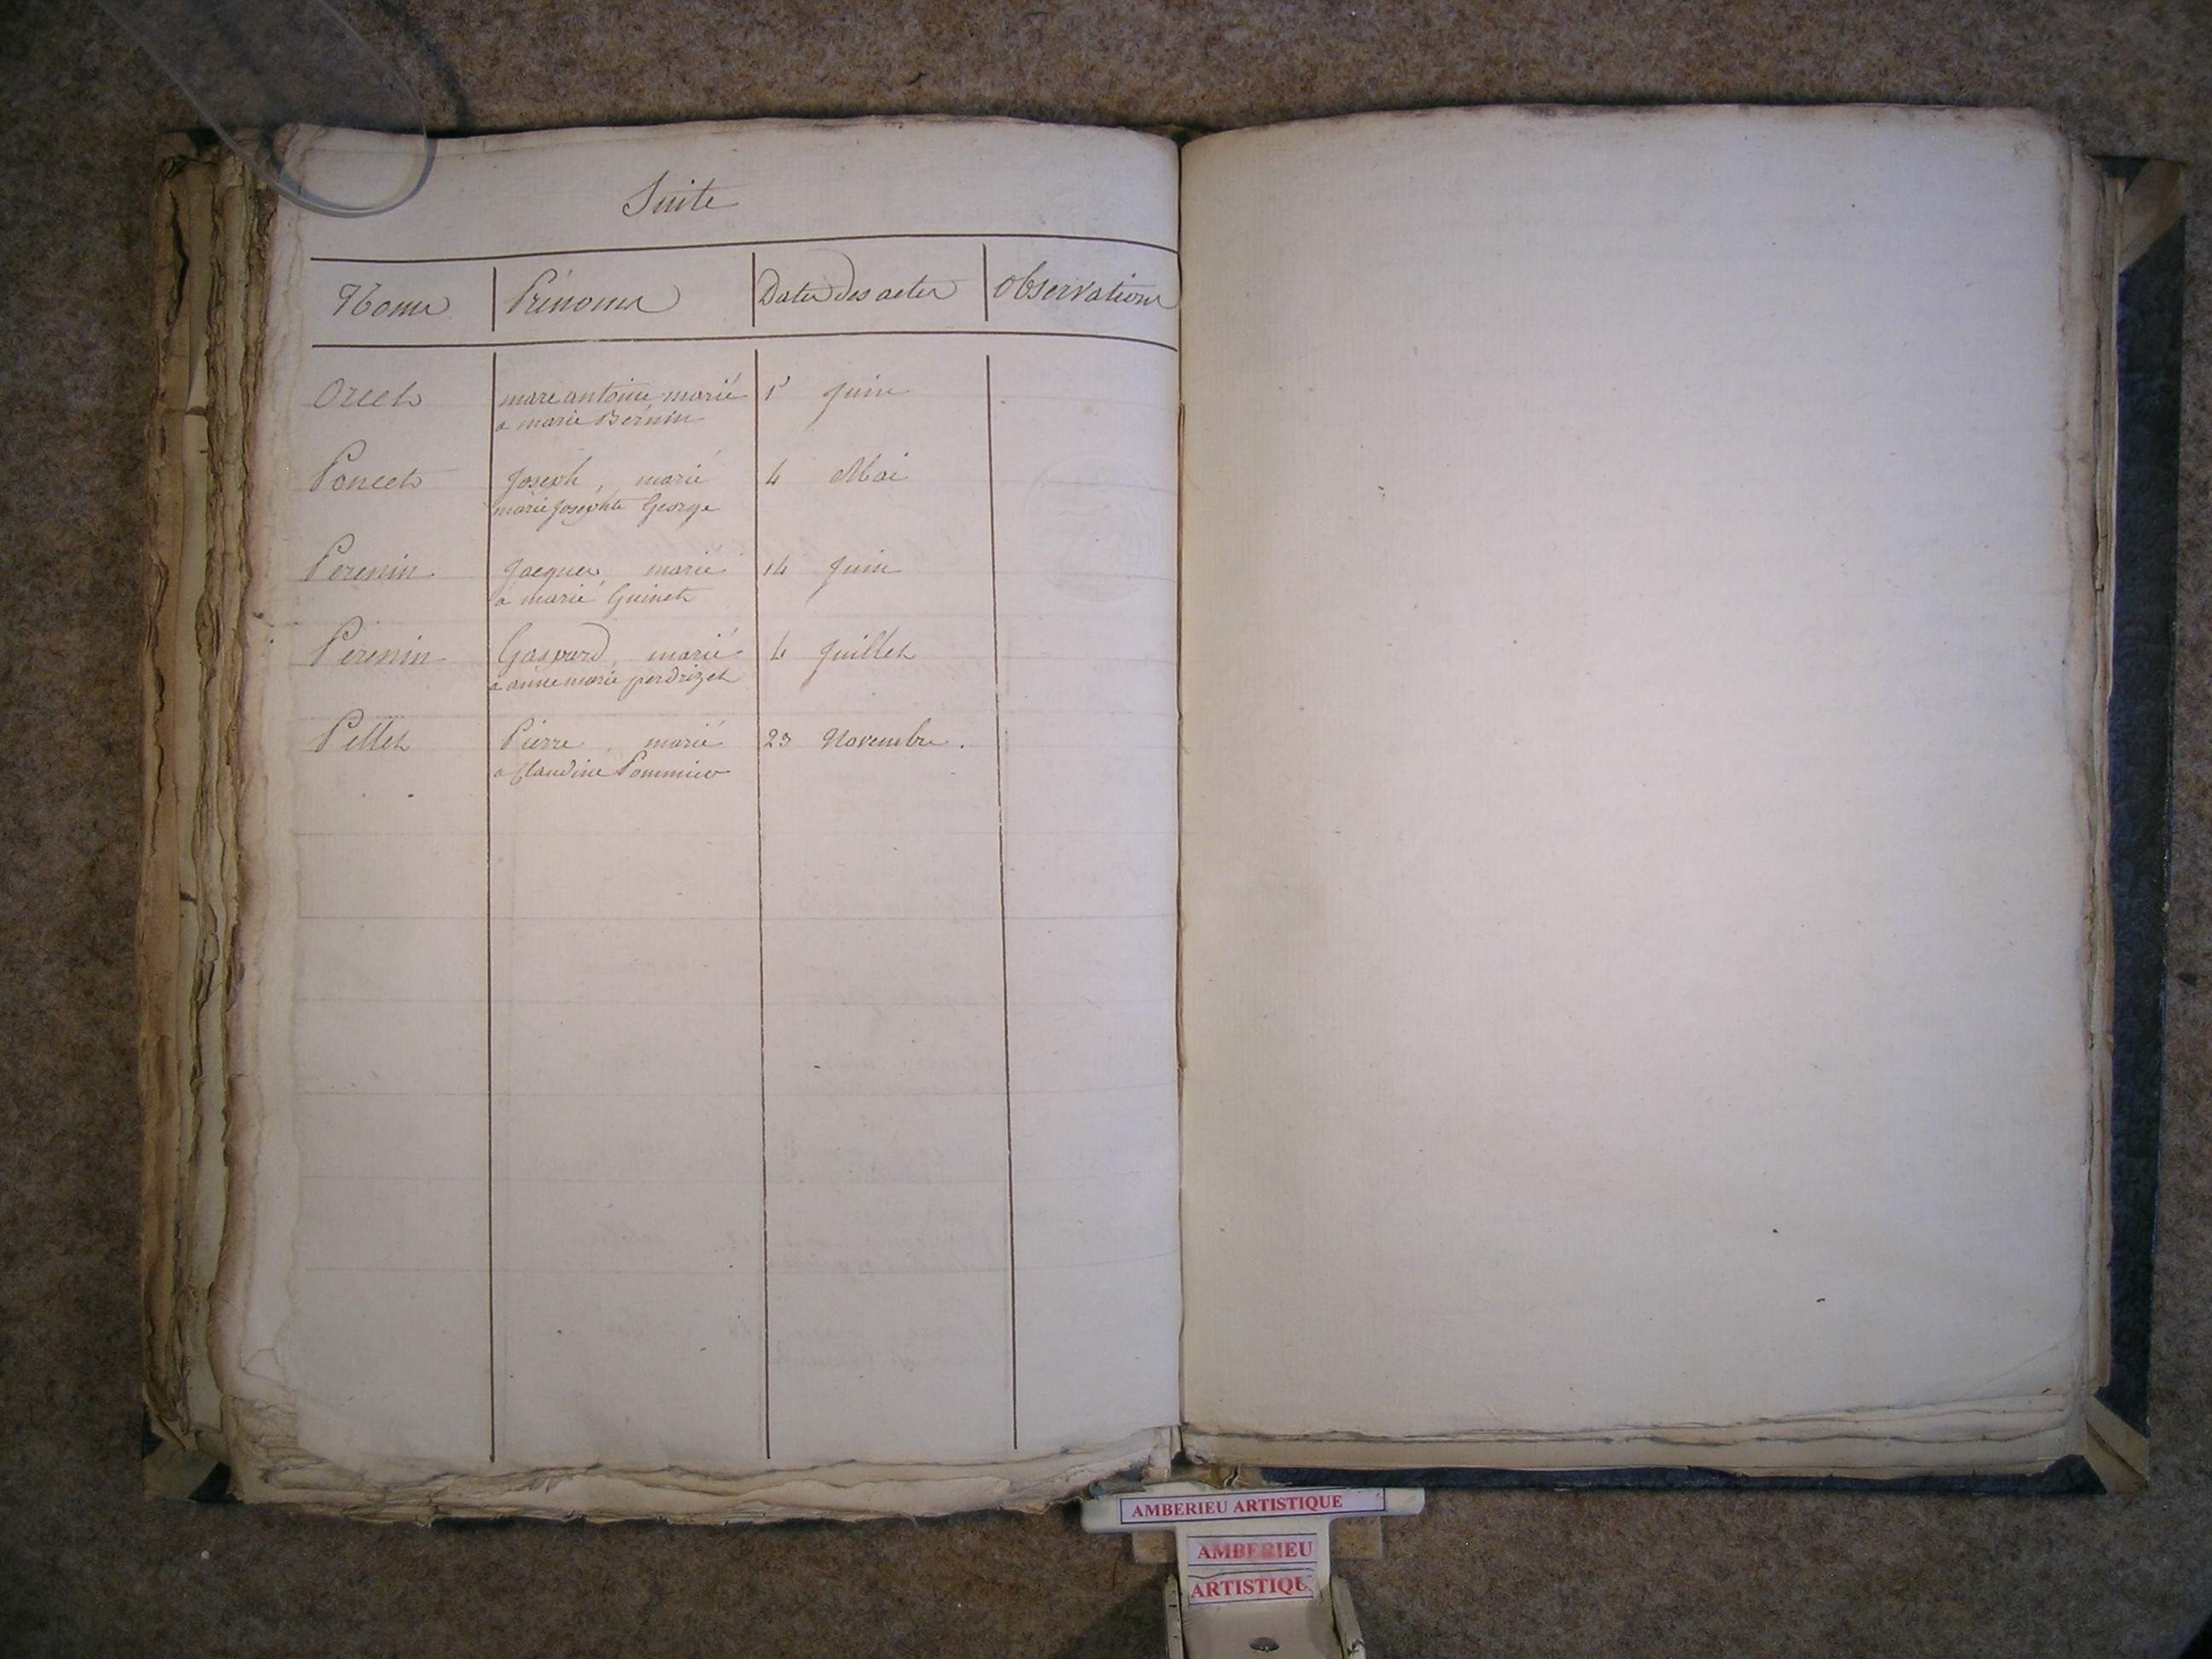 Suite
Noms Prénoms Dates des actes Observations
Orcet marc antoine marié 1er Juin
a marie Bérnin
Poncet Joseph, marié 4 Mai
marie Josephte George
Perenin Jacques, marié 14 Juin
a marie Guinet
Perenin Gaspard, marié 4 Juillet
a anne marie perdrizet
Pellet Pierre, marié 23 Novembre.
a Claudine Pommier
AMBERIEU ARTISTIQUE
AMBERIEU
ARTISTIQU